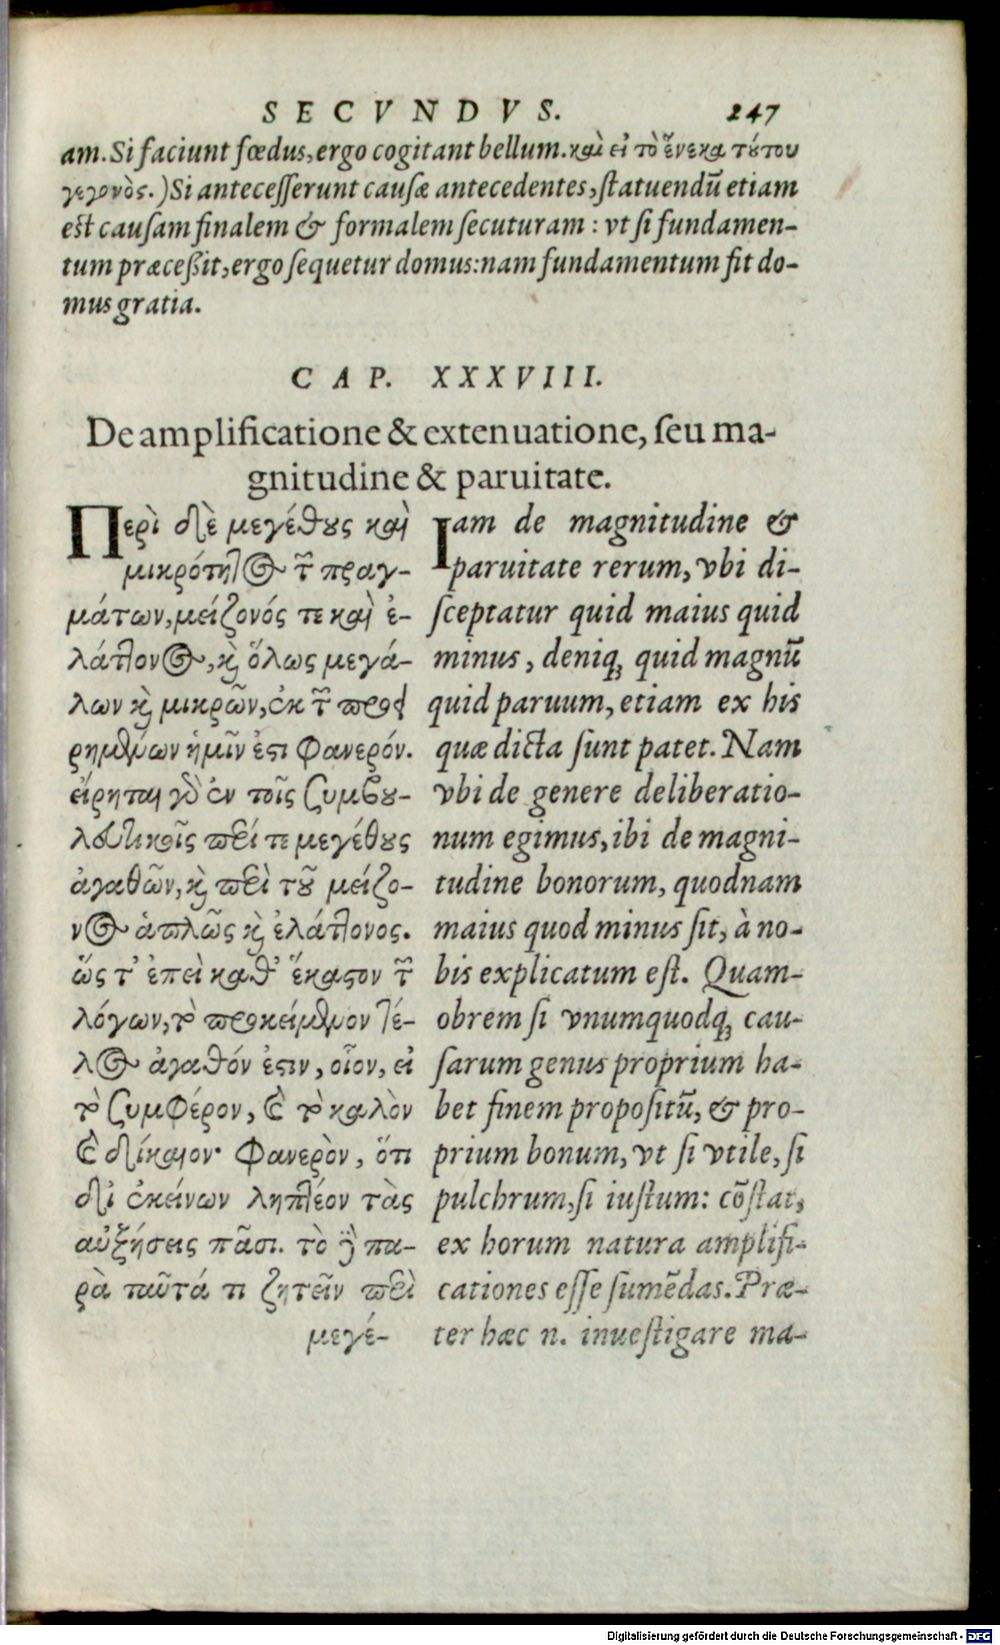 SECVNDVS. 247
am. Si faciunt fœdus, ergo cogitant bellum. καὶ εἰ τὸ ἕνεκα τούτου
γεγονὸς.) Si antecesserunt causæ antecedentes, statuendū etiam
est causam finalem & formalem secuturam : vt si fundamen-
tum præcessit, ergo sequetur domus: nam fundamentum fit do-
mus gratia.
CAP. XXXVIII.
De amplificatione & extenuatione, seu ma-
gnitudine & paruitate.
Περὶ δὲ μεγέθους καὶ
μικρότητος τῶν πραγ-
μάτων, μείζονός τε καὶ ἐ-
λάττονος, καὶ ὅλως μεγά-
λων καὶ μικρῶν, ἐκ τῶν προει
ρημένων ἡμῖν ἐστι φανερόν.
εἴρηται γὰρ ἐν τοῖς συμβου-
λευτικοῖς περί τε μεγέθους
ἀγαθῶν, καὶ περὶ τοῦ μείζο-
νος ἁπλῶς καὶ ἐλάττονος.
ὥς τ' ἐπεὶ καθ' ἕκαστον τῶν
λόγων, τὸ προκείμενον τέ-
λος ἀγαθόν ἐστιν, οἷον, εἰ
τὸ συμφέρον, καὶ τὸ καλὸν
καὶ δίκαιον· φανερὸν, ὅτι
δι' ἐκείνων ληπτέον τὰς
αὐξήσεις πᾶσι. τὸ δὲ πα-
ρὰ ταῦτά τι ζητεῖν περὶ
μεγέ-
Iam de magnitudine &
paruitate rerum, vbi di-
sceptatur quid maius quid
minus, deniq; quid magnū
quid paruum, etiam ex his
quæ dicta sunt patet. Nam
vbi de genere deliberatio-
num egimus, ibi de magni-
tudine bonorum, quodnam
maius quod minus sit, à no-
bis explicatum est. Quam-
obrem si vnumquodq; cau-
sarum genus proprium ha-
bet finem propositū, & pro-
prium bonum, vt si vtile, si
pulchrum, si iustum: cōstat,
ex horum natura amplifi-
cationes esse sumēdas. Præ-
ter hæc n. inuestigare ma-
Digitalisierung gefördert durch die Deutsche Forschungsgemeinschaft - DFG